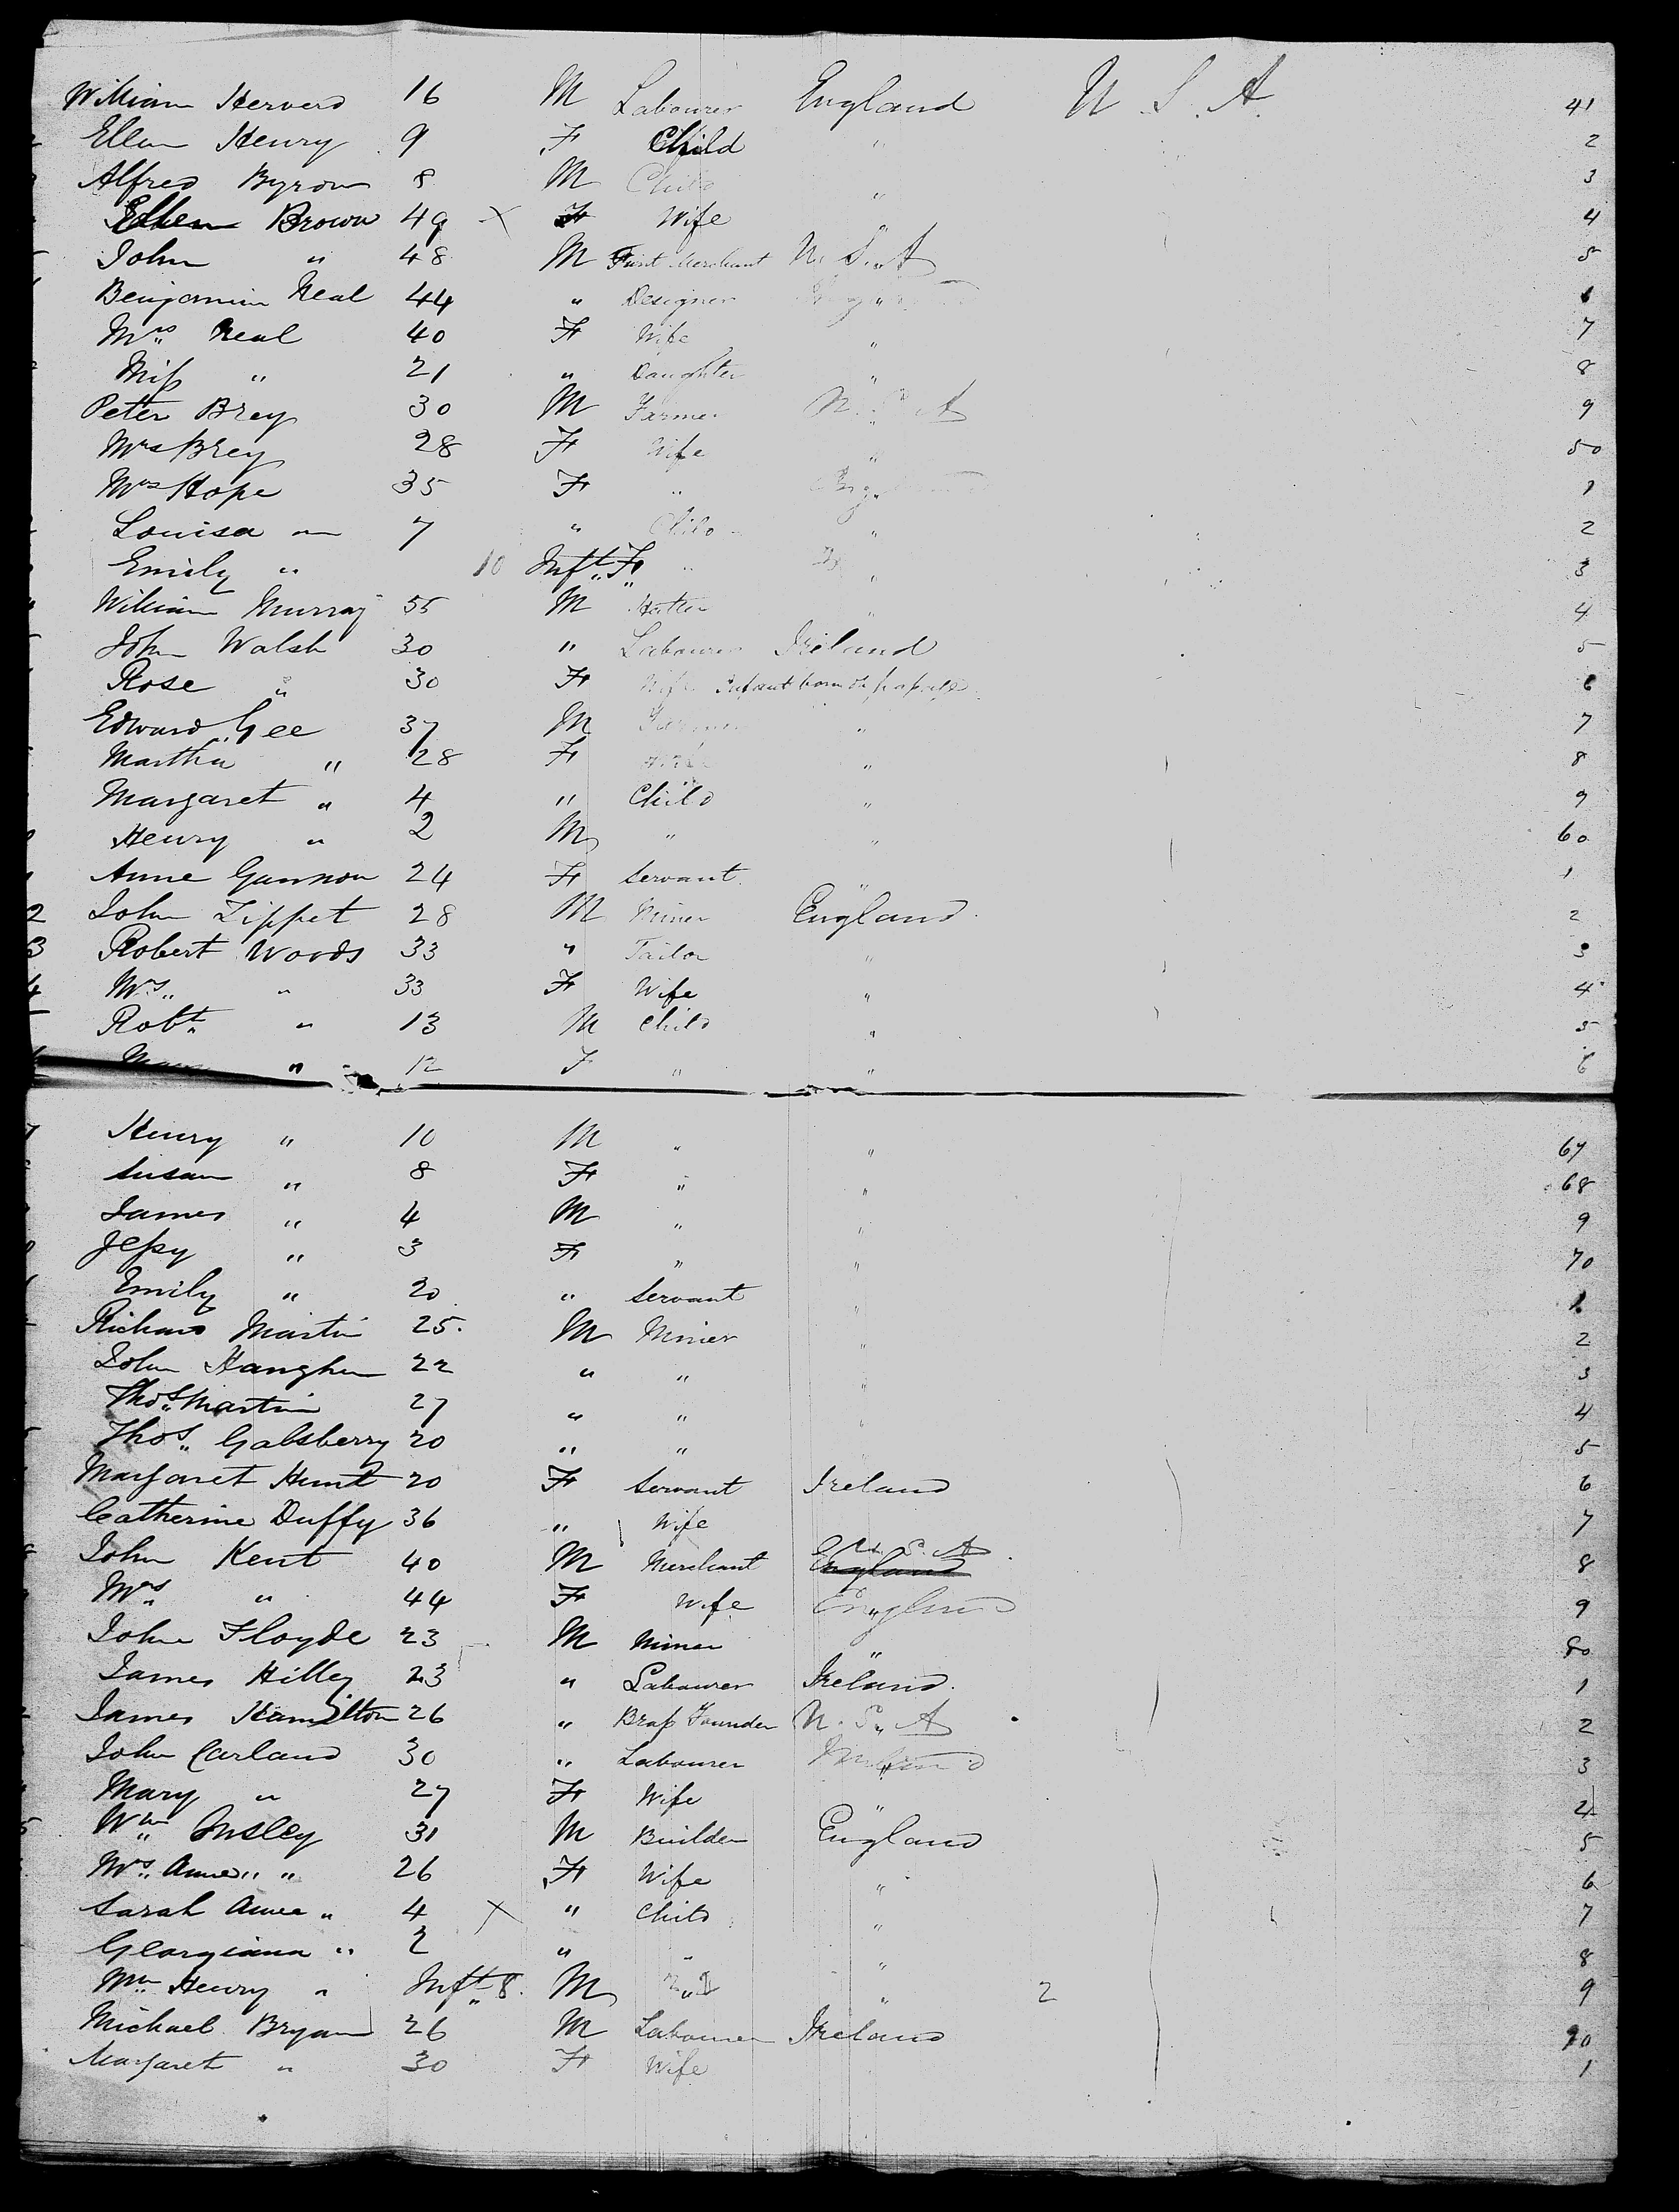 William 16 M Labourer England U. S. A. 41
Ellen Henry 9 F Child " 2
Alfred Byrom 8 M Child " 3
Ellen Brown 49 X F Wife " 4
John " 48 M Merchant U. S. A 5
Benjamin Neal 44 " Designer
Mrs Neal 40 F Wife " 7
Miss " 21 " Daughter " 8
Peter Brey 30 M Farmer U. S. A 9
Mrs Brey 28 F Wife " 50
Mrs Hope 35 F " 1
Louisa " 7 " Child " 2
Emily " 10 Inft F " " 3
William Murray 55 M Hatter " 4
John Walsh 30 " Labourer Ireland 5
Rose " 30 F Wife Infant born on passage 6
Edward Gee 37 M " 7
Martha " 28 F Wife " 8
Margaret " 4 " Child " 9
Henry " 2 M " " 60
Anne Gannon 24 F Servant " 1
John Tippet 28 M Miner England 2
Robert Woods 33 " Tailor " 3
Mrs " 33 F Wife " 4
Robt " 13 M Child " 5
" 12 F " " 6
Henry " 10 M " " 67
Susan " 8 F " " 68
James " 4 M " " 9
Jessy " 3 F " " 70
Emily " 20 " Servant " 1
Richard Martin 25 M Miner " 2
John 22 " " " 3
Thos Martin 27 " " " 4
Thos Galsberry 20 " " 5
Margaret Hunt 20 F Servant Ireland 6
Catherine Duffy 36 " Wife 7
John Kent 40 M Merchant U. S. A England 8
Mrs " 44 F Wife England 9
John Floyde 23 M Miner " 80
James Hilley 23 " Labourer Ireland 1
James Hamilton 26 " Brass Founder U. S. A 2
John Carland 30 " Labourer Ireland 3
Mary " 27 F Wife " 4
Wm Insley 31 M Builder England 5
Mrs Anne " 26 F Wife " 6
Sarah Anne " 4 X " Child " 7
Georgiana " 2 " " " 8
Wm Henry " Inft 8 M " " 2 9
Michael Bryan 26 M Labourer Ireland 90
Margaret " 30 F Wife 1